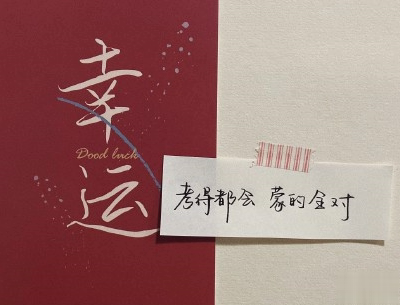 幸
Dood luck
运
考得都会 蒙的全对